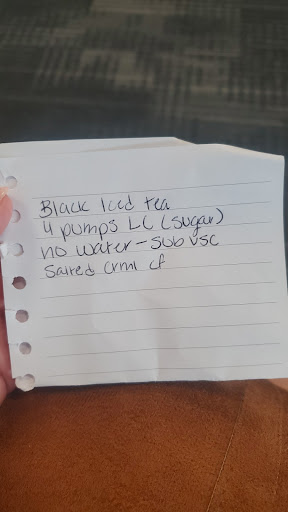 Black Iced tea
4 pumps LC (sugar)
no water - sub vsc
Salted crml cf